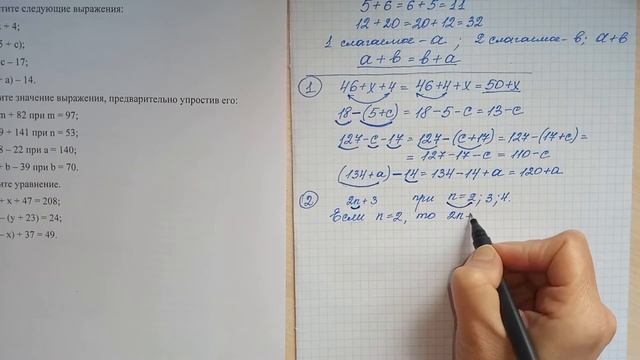 стите следующие выражения:
+ 4;
5 + c);
c – 17;
+ a) – 14.
ите значение выражения, предварительно упростив его:
m + 82 при m = 97;
9 + 141 при n = 53;
8 – 22 при a = 140;
+ b – 39 при b = 70.
ите уравнение.
+ x + 47 = 208;
– (y + 23) = 24;
– x) + 37 = 49.
5 + 6 = 6 + 5 = 11
12 + 20 = 20 + 12 = 32
1 слагаемое - a ; 2 слагаемое - b; a+b
a + b = b + a
1 46 + x + 4 = 46 + 4 + x = 50 + x
18 - (5 + c) = 18 - 5 - c = 13 - c
127 - c - 17 = 127 - (c + 17) = 127 - (17 + c) =
= 127 - 17 - c = 110 - c
(134 + a) - 14 = 134 - 14 + a = 120 + a
2 2n + 3 при n = 2; 3; 4.
Если n = 2, то 2n+